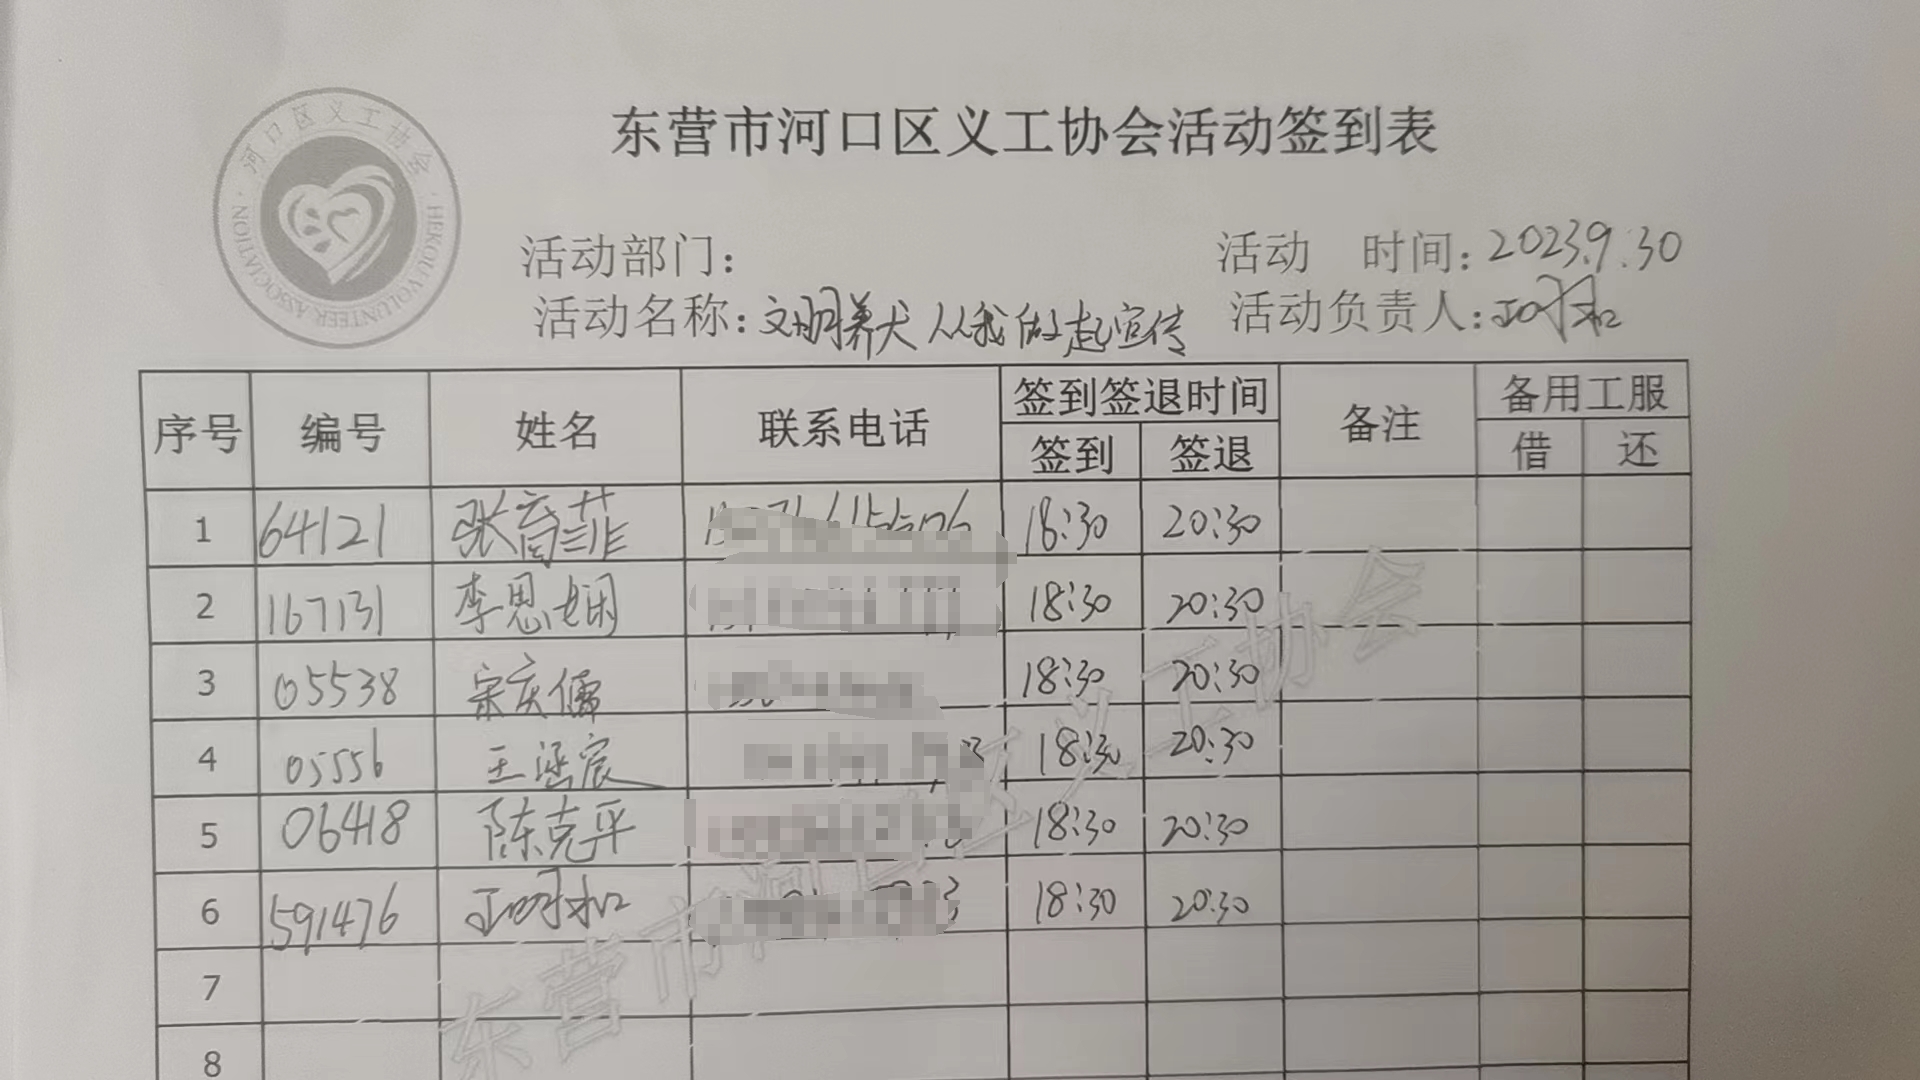 河口区义工协会
HEKOU VOLUNTEER ASSOCIATION
东营市河口区义工协会活动签到表
活动部门：
活动 时间：2023.9.30
活动名称：文明养犬从我做起宣传
活动负责人：
序号 编号 姓名 联系电话 签到签退时间 备注 备用工服
签到 签退 借 还
1 64121 张育菲 18:30 20:30
2 167131 李思娴 18:30 20:30
3 05538 宋庆儒 18:30 20:30
4 05556 王涵宸 18:30 20:30
5 06418 陈克平 18:30 20:30
6 591476 18:30 20:30
7
8
东营市河口区义工协会